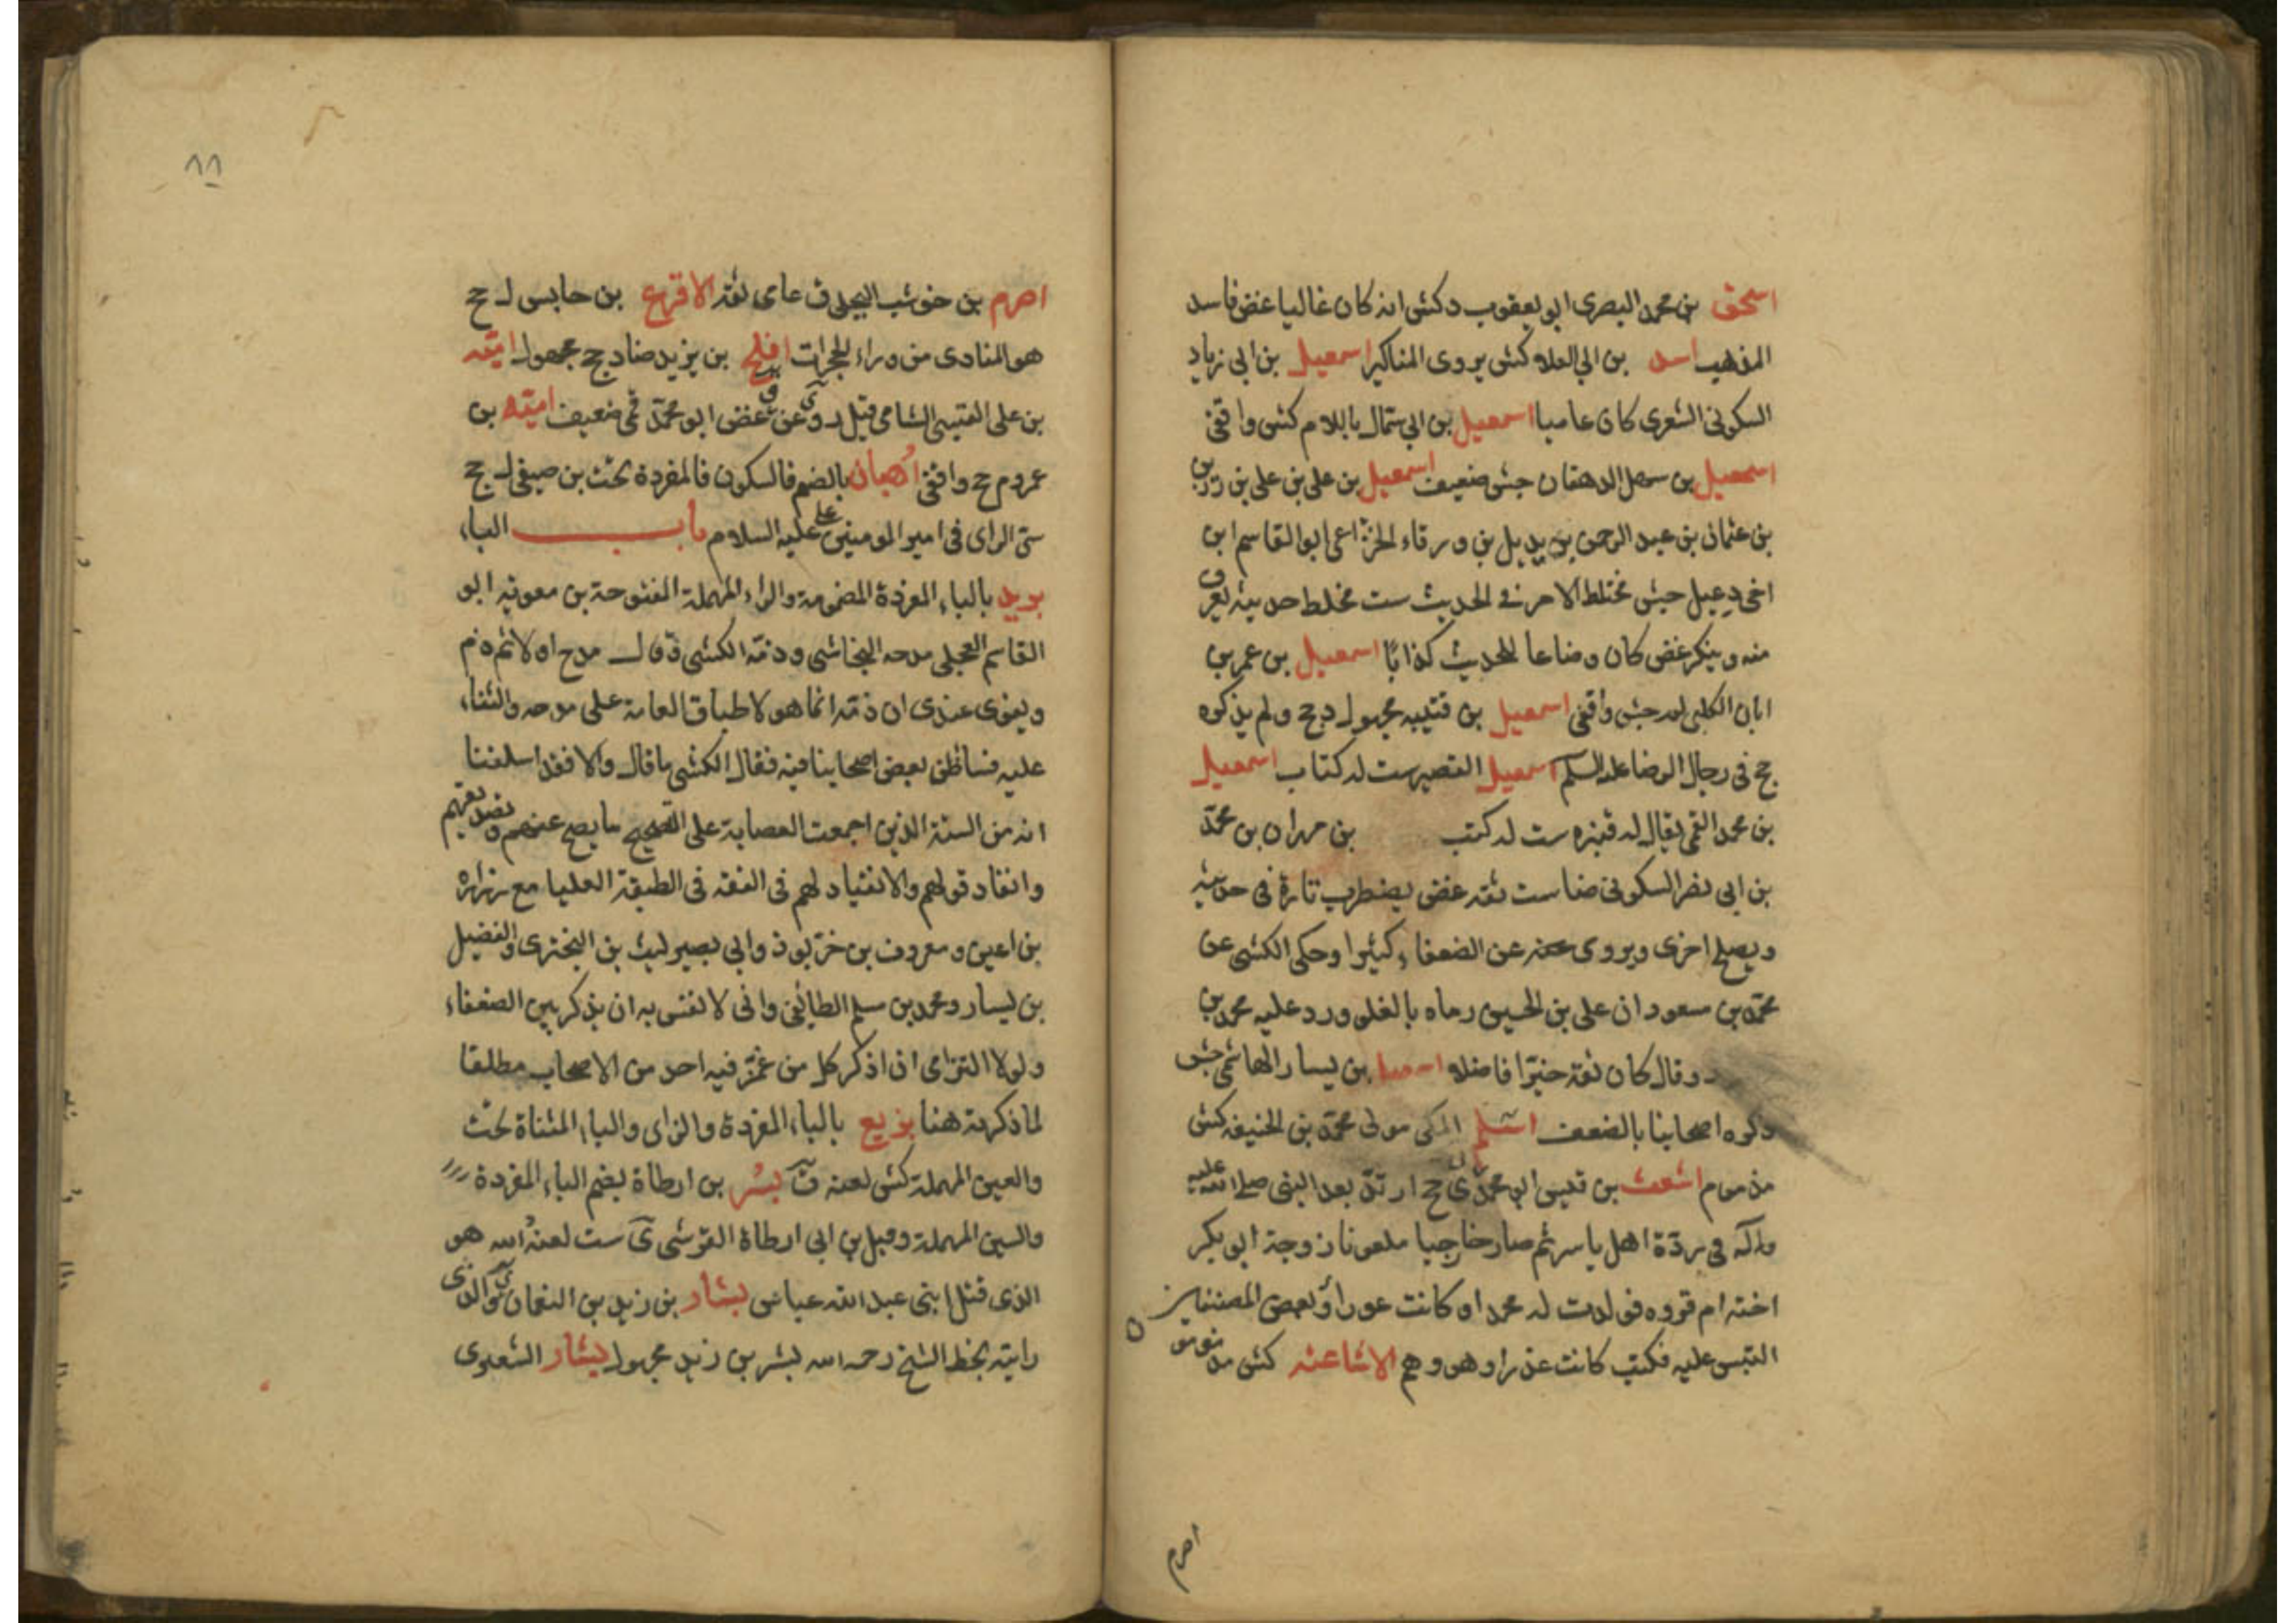 اسحق بن محمد البصري ابو يعقوب د كش انه كان غاليا غض فاسد
المذهب اسد بن ابي العلاء كش يروي المناكير اسمعيل بن ابي زياد
السكوني الشعري كان عاميا اسمعيل بن ابي سمال باللام كش واقفي
اسمعيل بن سهل الدهقان جش ضعيف اسمعيل بن علي بن علي بن رزين
بن عثمان بن عبد الرحمن بن بديل بن ورقاء الخزاعي ابو القاسم ابن
اخي دعبل جش مختلط الامر في الحديث ست مخلط حديثه يعرف
منه وينكر غض كان وضاعا للحديث كذابا اسمعيل بن عمر بن
ابان الكلبي جش واقفي اسمعيل بن قتيبه مجهول د جح ولم يذكره
جح في رجال الرضا عليه السلم اسمعيل القصير ست له كتاب اسمعيل
بن محمد القمي يقال له قنبره ست له كتب بن مهران بن محمد
بن ابي نصر السكوني ضا ست ثقه غض يضطرب تارة في حديثه
ويصلح اخرى ويروي عن الضعفاء كثيرا وحكى الكشي عن
محمد بن مسعود ان علي بن الحسين رماه بالغلو ورد عليه محمد بن
وقال كان ثقة خيرا فاضلا بن يسار الهاشمي جش
ذكره اصحابنا بالضعف اسلم المكي مولى محمد بن الحنيفه كش
مذموم اشعث بن قيس ابو محمد ي جح ارتد بعد النبي صلى الله عليه
واله في ردة اهل ياسر ثم صار خارجيا ملعونا زوجه ابو بكر
اخته ام فروه فولدت له محمدا وكانت عورا وبعض المصنفين
التبس عليه فكتب كانت عذراء وهو وهم الاشاعثه كش
اصرم
٨٨
اصرم بن حوشب البجلي ق عامي ثقه الاقرع بن حابس ل جح
هو المنادي من وراء الحجرات افلح بن يزيد صاد جح مجهول اميه
بن علي القيسي الشامي قيل روى عن غض ابو محمد قمي ضعيف اميه بن
عمرو م جح واقفي اهبان بالضم فالسكون فالمفردة تحت بن صيفي ل جح
سئ الراي في امير المومنين علي عليه السلام باب الباء
بريد بالباء المفردة المضمومة والراء المهملة المفتوحة بن معويه ابو
القاسم العجلي مدحه النجاشي وذمه الكشي مدح اولا ثم ذم
ويقوى عندي ان ذمه انما هو لاطباق العامة على مدحه والثناء
عليه فساء ظن بعض اصحابنا فيه فقال الكشي ما قال والا فقد اسلفنا
انه من الستة الذين اجمعت العصابة على تصحيح ما يصح عنهم وتصديقهم
وانفاد قولهم والانقياد لهم في الفقه في الطبقة العليا مع زرارة
بن اعين ومعروف بن خربوذ وابي بصير ليث بن البختري والفضيل
بن يسار ومحمد بن مسلم الطائفي واني لا نفس به ان يذكر بين الضعفاء
ولولا التزامي ان اذكر كل من غمز فيه احد من الاصحاب مطلقا
لما ذكرته هنا بزيع بالباء المفردة والزاي والياء المثناة تحت
والعين المهملة كش لعنه ق بسر بن ارطاة بضم الباء المفردة
والسين المهملة وقيل بن ابي ارطاة القرشي ي ست لعنه الله هو
الذي قتل ابني عبد الله عباس بشار بن زيد بن النعمان والذي
رايته بخط الشيخ رحمه الله بشر بن زيد مجهول بشار الشعيري